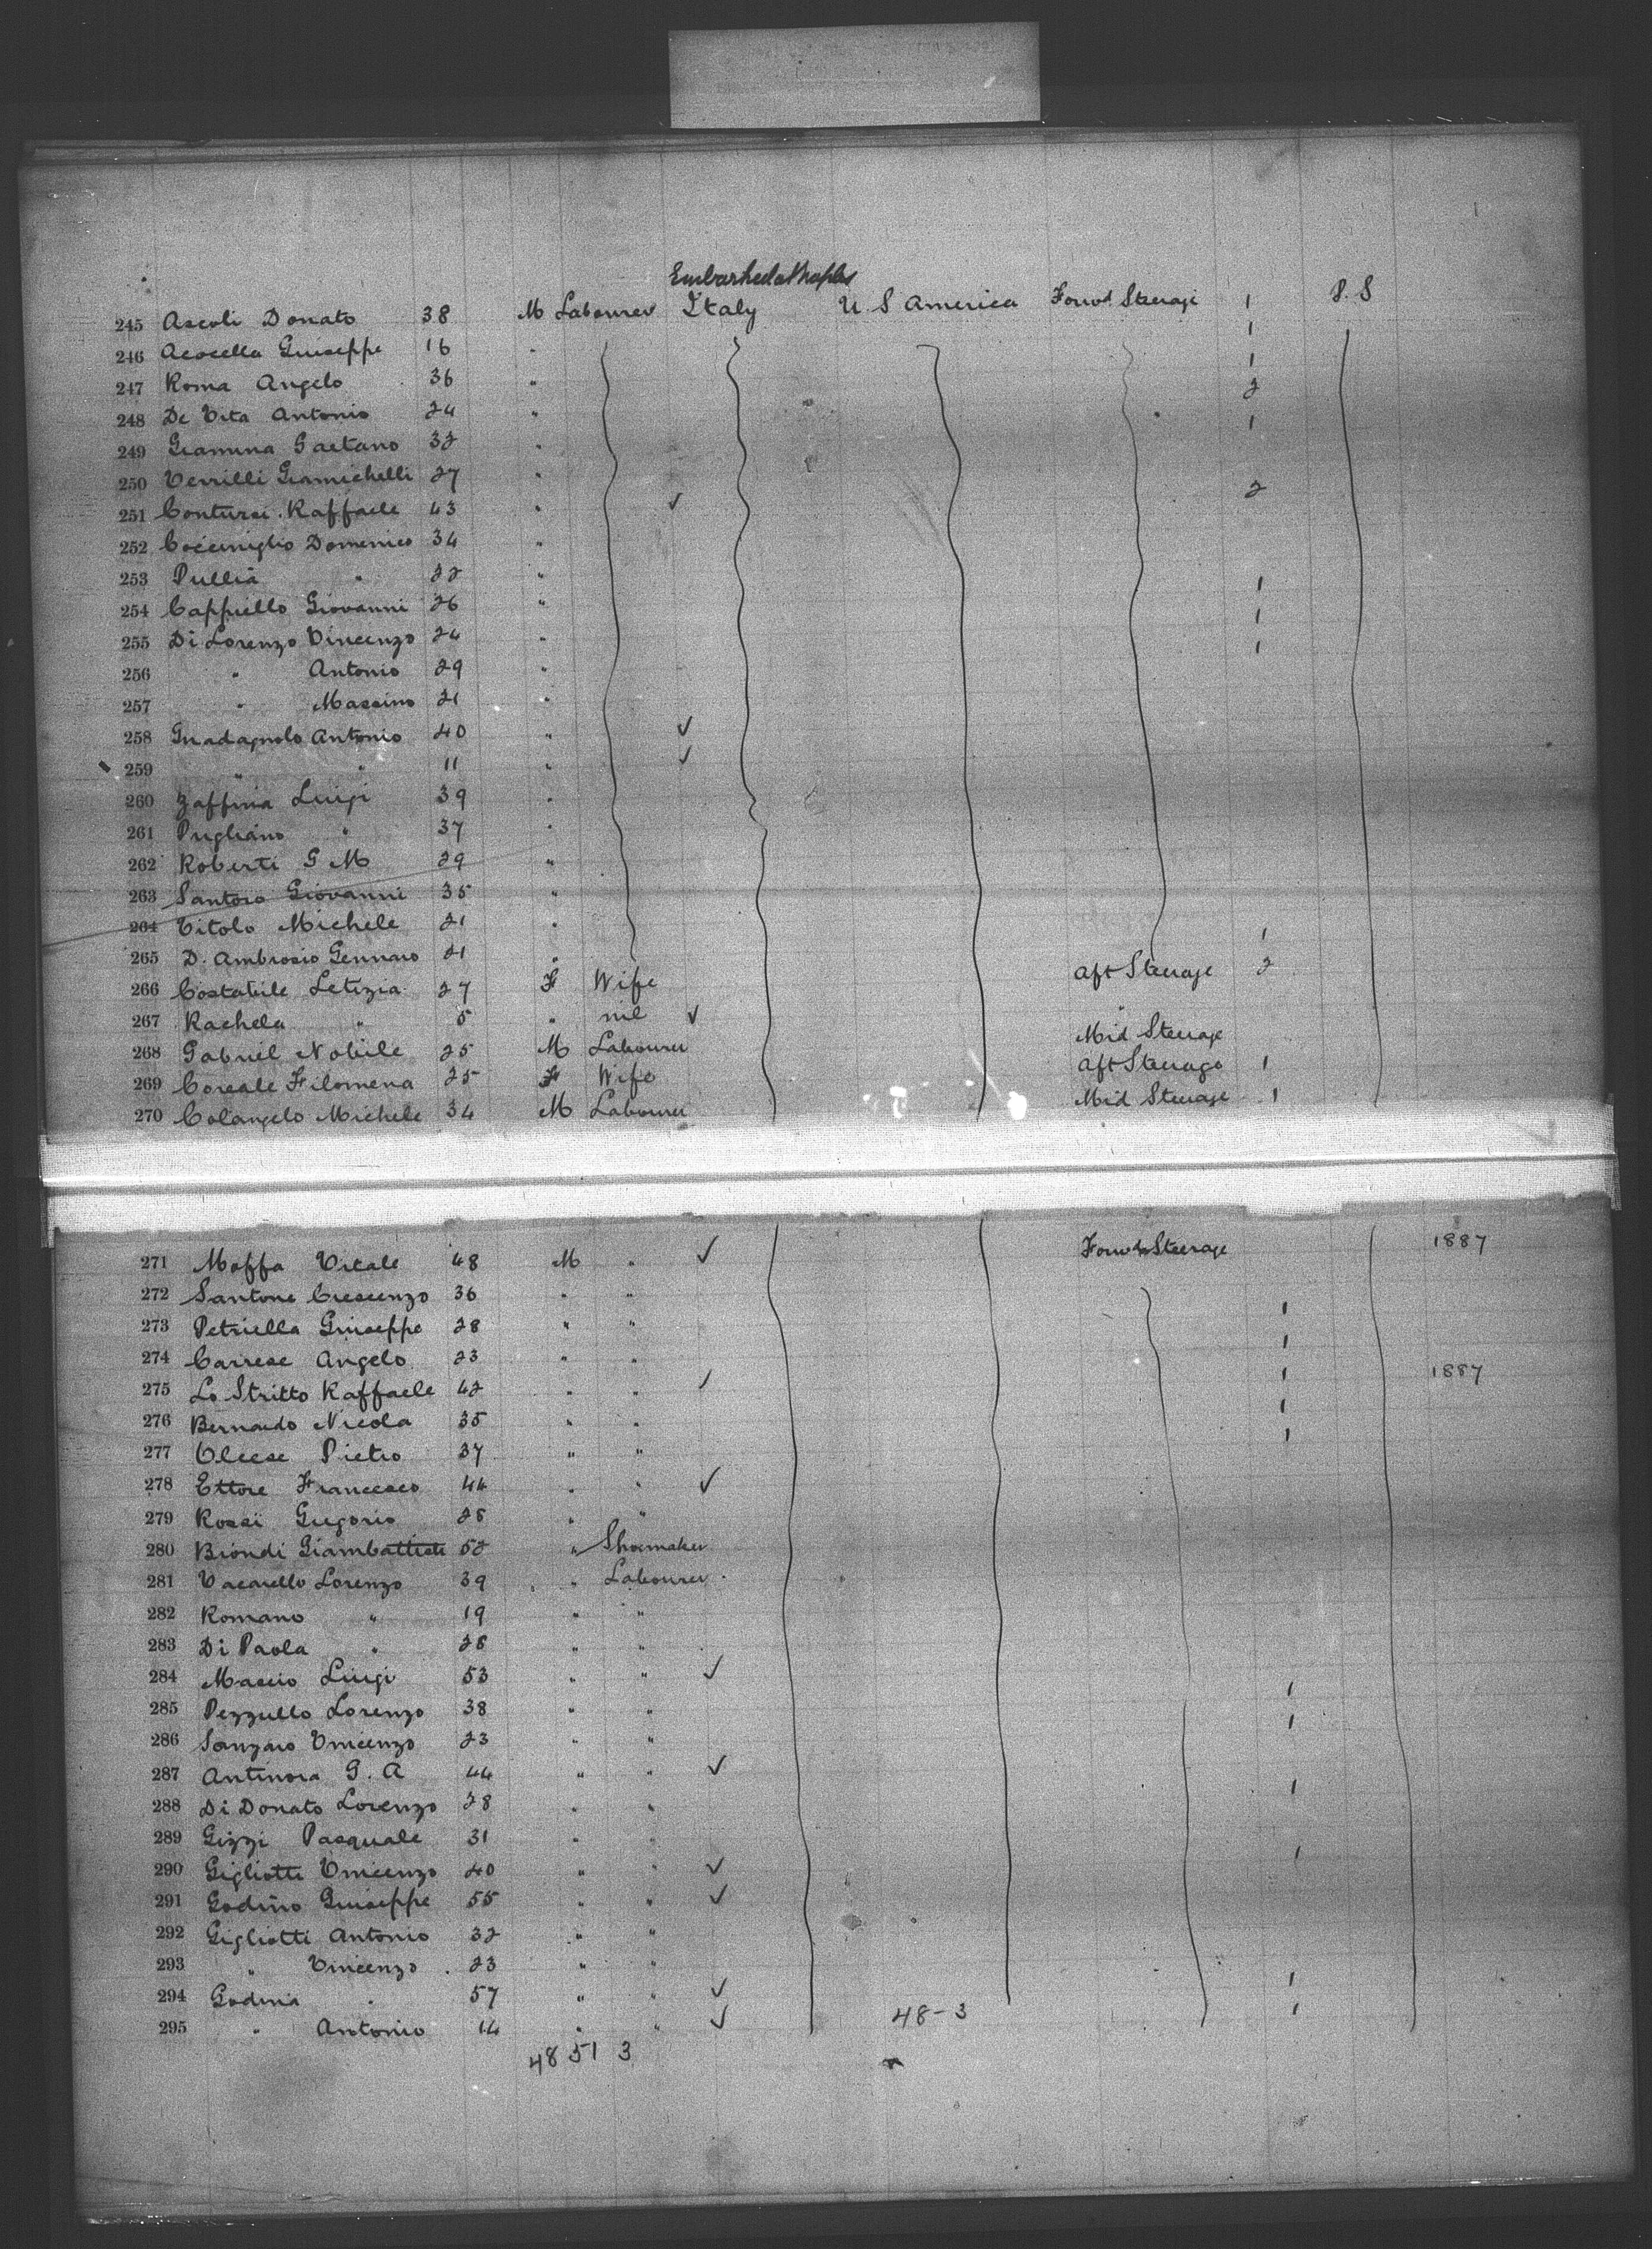 Embarked at Naples
245 Ascoli Donato 38 M Labourer Italy U. S America Forwd Steerage 1 P. S
246 Acocella Guiseppe 16 " 1
247 Roma Angelo 36 " 1
248 De Vita Antonio 24 " 2
249 Giamma Gaetano 32 " 1
250 Verrilli Giamichelli 27 "
251 Conturse. Raffaele 43 " ✓ 2
252 Cocciniglio Domenico 34 "
253 Pullia " 22 "
254 Cappiello Giovanni 26 " 1
255 Di Lorenzo Vincenzo 24 " 1
256 " Antonio 29 " 1
257 " Massino 21 "
258 Guadagnolo Antonio 40 " ✓
259 " " 11 " ✓
260 Zaffina Luigi 39 "
261 Pugliano " 37 "
262 Roberti G M 29 "
263 Santoro Giovanni 35 "
264 Vitolo Michele 21 "
265 D. Ambrosio Gennaro 21 " 1
266 Costabile Letizia 27 F Wife Aft Steerage 2
267 Rachela " 5 " nil ✓ "
268 Gabriel Nobile 25 M Labourer Mid Steerage
269 Coreale Filomena 25 F Wife Aft Steerage 1
270 Colangelo Michele 34 M Labourer Mid Steerage 1
271 Moffa Vitale 48 M " ✓ Forwd Steerage 1887
272 Santone Crescenzo 36 " "
273 Petriella Guiseppe 28 " " 1
274 Carrese Angelo 23 " " 1
275 Lo Stritto Raffaele 42 " " / 1 1887
276 Bernardo Nicola 35 " " 1
277 Oleese Pietro 37 " " 1
278 Ettore Francesco 44 " " ✓
279 Rossi Gregorio 28 " "
280 Biondi Giambattiste 52 " Shoemaker
281 Vacarello Lorenzo 39 " Labourer
282 Romano " 19 " "
283 Di Paola " 28 " "
284 Mascio Luigi 53 " " ✓
285 Pezzullo Lorenzo 38 " " 1
286 Sanzaro Vincenzo 23 " " 1
287 Antinora G. A 44 " " ✓
288 Di Donato Lorenzo 28 " " 1
289 Gizzi Pasquale 31 " "
290 Gigliotti Vincenzo 40 " " ✓ 1
291 Godino Guiseppe 55 " " ✓
292 Gigliotti Antonio 32 " "
293 " Vincenzo 23 " "
294 Godina " 57 " " ✓ 1
295 " Antonio 14 " " ✓ 48-3 1
48 51 3